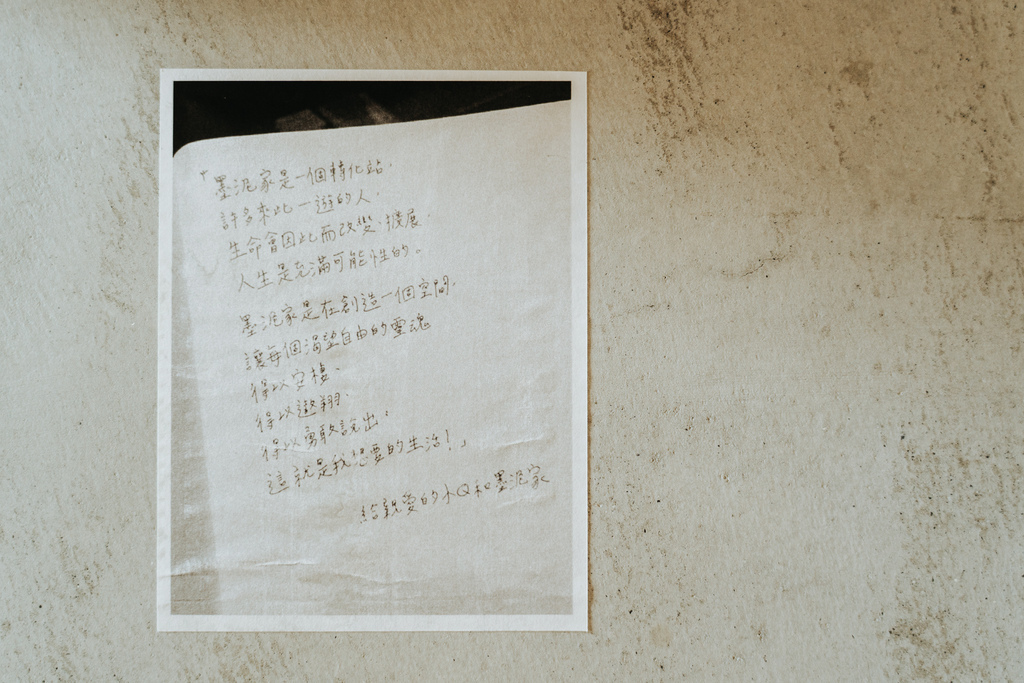 「墨泥家是一個轉化站，
許多來此一遊的人，
生命會因此而改變、擴展，
人生是充滿可能性的。
墨泥家是在創造一個空間，
讓每個渴望自由的靈魂
得以安棲、
得以遨翔、
得以勇敢說出，
這就是我想要的生活！」
給親愛的小Q和墨泥家